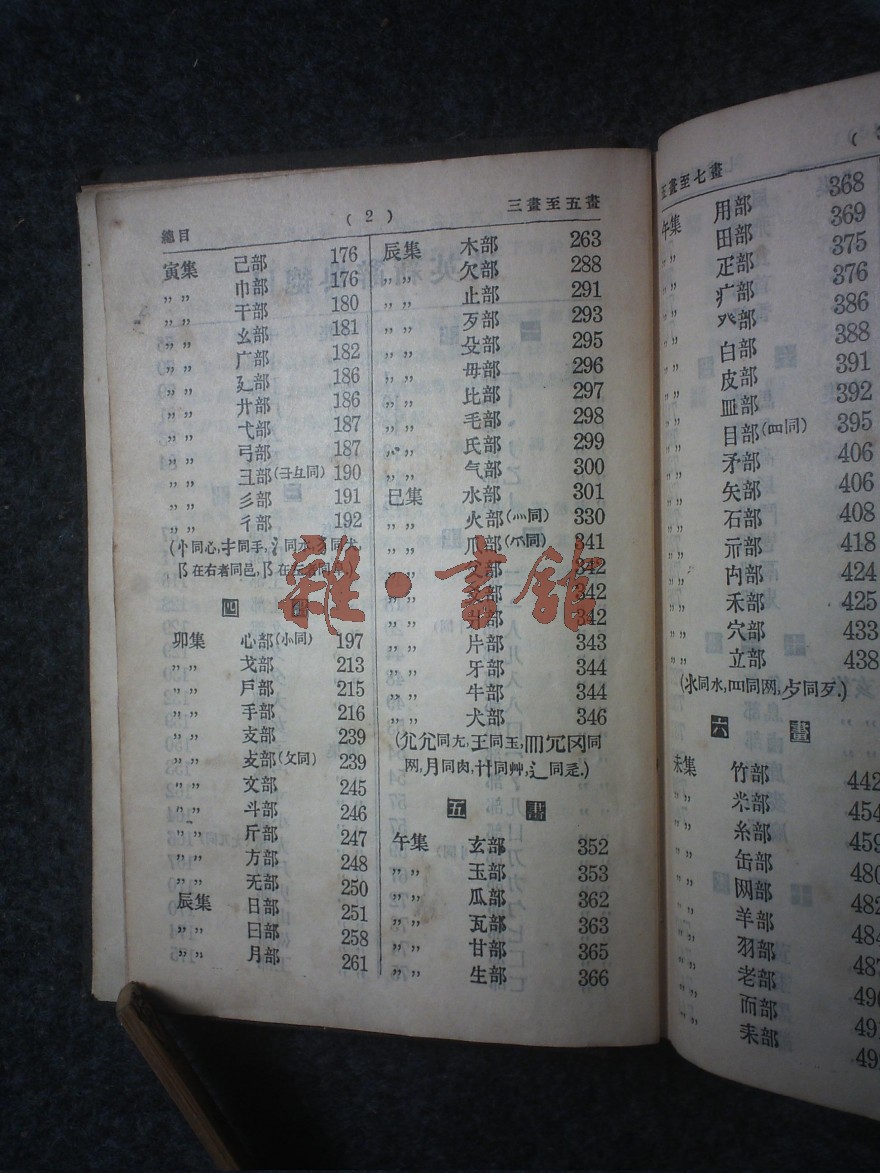 總目
( 2 )
三畫至五畫
寅集 己部 176
〃 〃 巾部 176
〃 〃 干部 180
〃 〃 幺部 181
〃 〃 广部 182
〃 〃 廴部 186
〃 〃 廾部 186
〃 〃 弋部 187
〃 〃 弓部 187
〃 〃 彐部(彑同) 190
〃 〃 彡部 191
〃 〃 彳部 192
(忄同心,扌同手,氵同水,犭同犬,
阝在右者同邑,阝在左者同阜.)
四 畫
卯集 心部(㣺同) 197
〃 〃 戈部 213
〃 〃 戶部 215
〃 〃 手部 216
〃 〃 支部 239
〃 〃 攴部(攵同) 239
〃 〃 文部 245
〃 〃 斗部 246
〃 〃 斤部 247
〃 〃 方部 248
〃 〃 无部 250
辰集 日部 251
〃 〃 曰部 258
〃 〃 月部 261
辰集 木部 263
〃 〃 欠部 288
〃 〃 止部 291
〃 〃 歹部 293
〃 〃 殳部 295
〃 〃 毋部 296
〃 〃 比部 297
〃 〃 毛部 298
〃 〃 氏部 299
〃 〃 气部 300
巳集 水部 301
〃 〃 火部(灬同) 330
〃 〃 爪部(爫同) 341
〃 〃 父部 342
〃 〃 爻部 342
〃 〃 爿部 342
〃 〃 片部 343
〃 〃 牙部 344
〃 〃 牛部 344
〃 〃 犬部 346
同尢,王同玉,
同
网,月同肉,艹同艸,辶同辵.)
五 畫
午集 玄部 352
〃 〃 玉部 353
〃 〃 瓜部 362
〃 〃 瓦部 363
〃 〃 甘部 365
〃 〃 生部 366
五畫至七畫
午集 用部 368
〃 〃 田部 369
〃 〃 疋部 375
〃 〃 疒部 376
〃 〃 癶部 386
〃 〃 白部 388
〃 〃 皮部 391
〃 〃 皿部 392
〃 〃 目部(罒同) 395
〃 〃 矛部 406
〃 〃 矢部 406
〃 〃 石部 408
〃 〃 示部 418
〃 〃 禸部 424
〃 〃 禾部 425
〃 〃 穴部 433
〃 〃 立部 438
(氺同水,罒同网,歺同歹.)
六 畫
未集 竹部 442
〃 〃 米部 454
〃 〃 糸部 459
〃 〃 缶部 480
〃 〃 网部 482
〃 〃 羊部 484
〃 〃 羽部 487
〃 〃 老部
〃 〃 而部
〃 〃 耒部
雜·書館